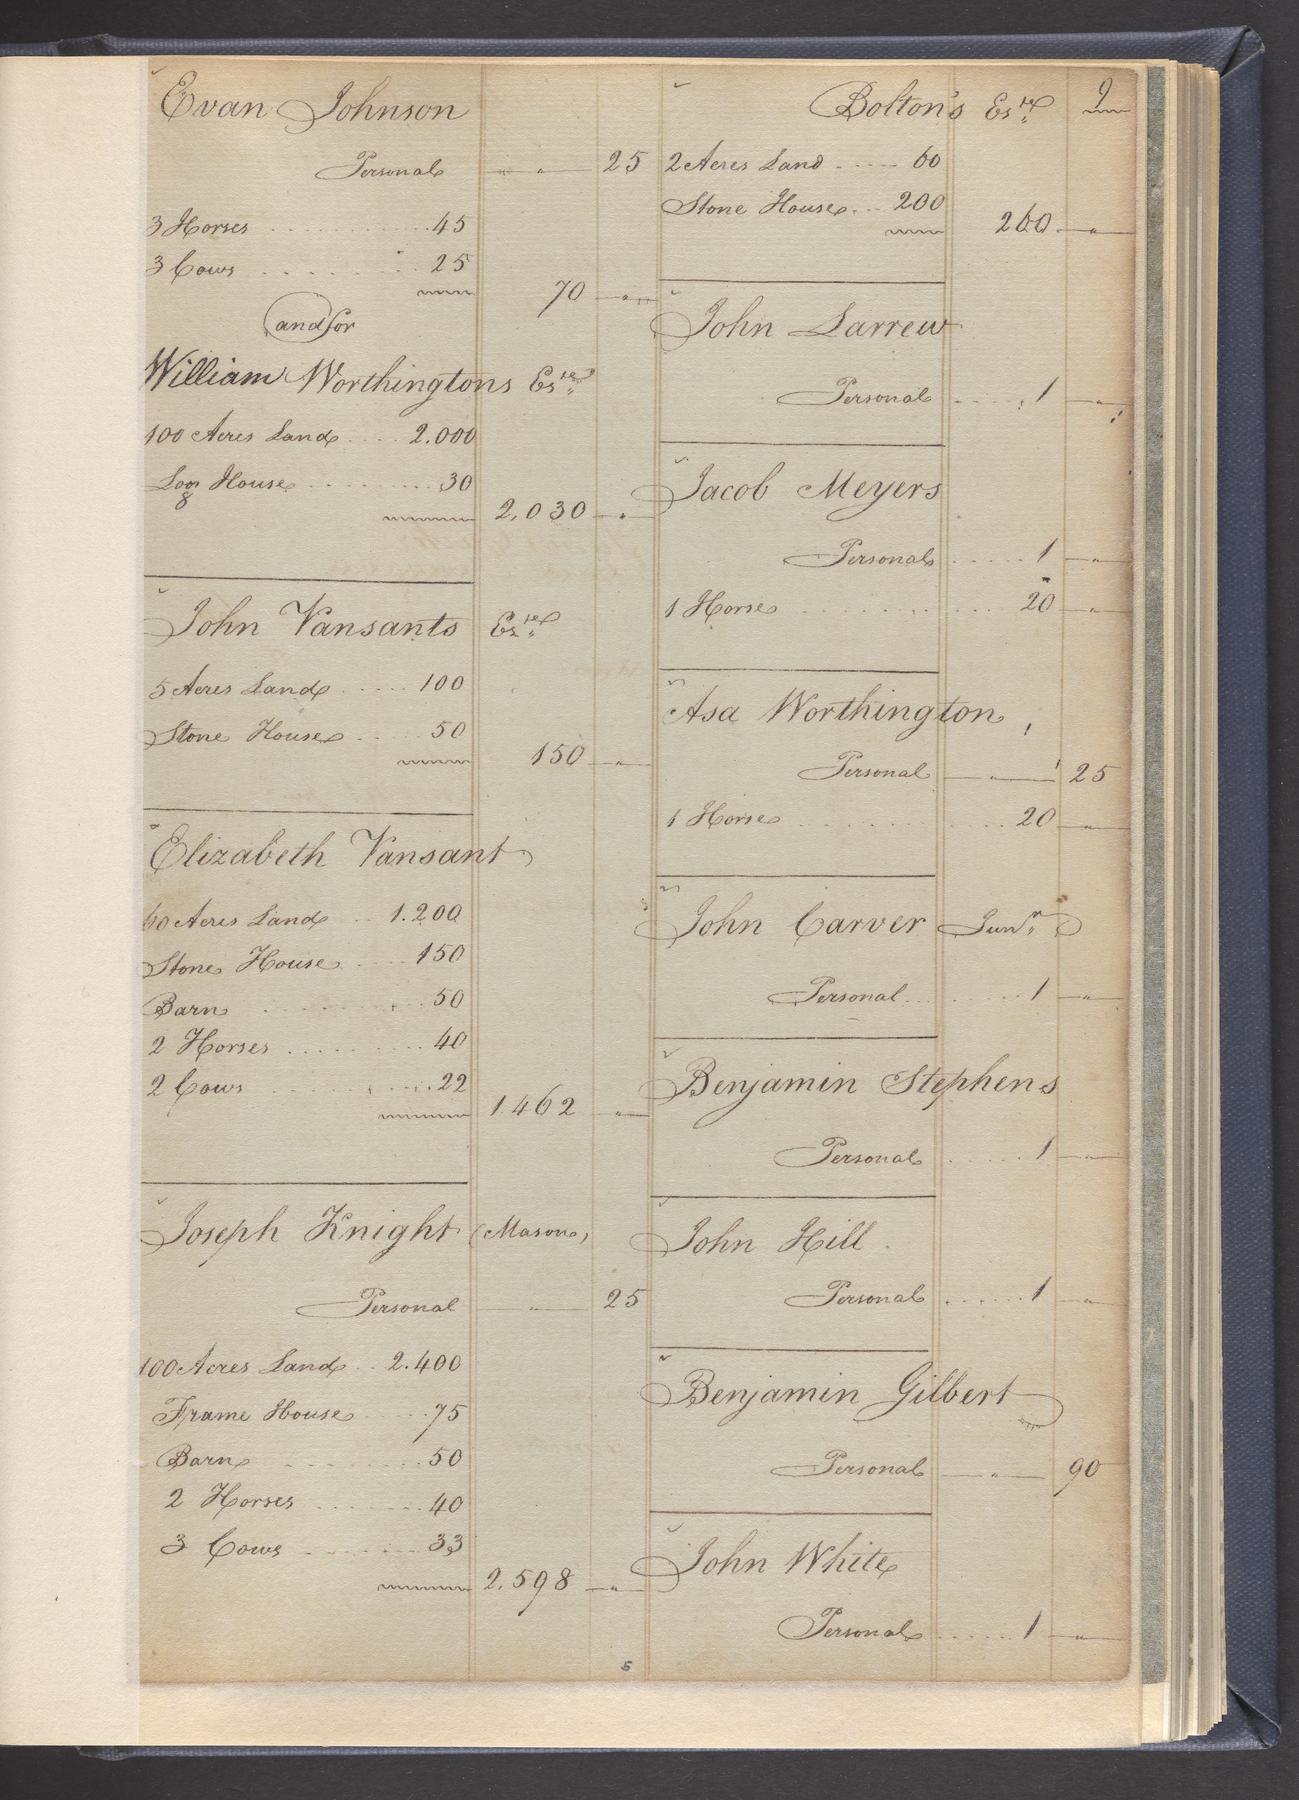 Evan Johnson
Personal " 25
3 Horses 45
3 Cows 25
70 "
and for
William Worthingtons Esre
100 Acres Land 2.000
Log House 30
2,030 "
John Vansants Esre
5 Acres Land 100
Stone House 50
150 "
Elizabeth Vansant
60 Acres Land 1.200
Stone House 150
Barn 50
2 Horses 40
2 Cows 22
1462 "
Joseph Knight (Mason)
Personal " 25
100 Acres Land 2.400
Frame House 75
Barn 50
2 Horses 40
3 Cows 33
2.598 "
Bolton's Esre 9
2 Acres Land 60
Stone House 200
260 "
John Larrew
Personal 1 "
Jacob Meyers
Personal 1 "
1 Horse 20 "
Asa Worthington
Personal " 25
1 Horse 20 "
John Carver Junr
Personal 1 "
Benjamin Stephens
Personal 1 "
John Hill
Personal 1 "
Benjamin Gilbert
Personal " 90
John White
Personal 1 "
5